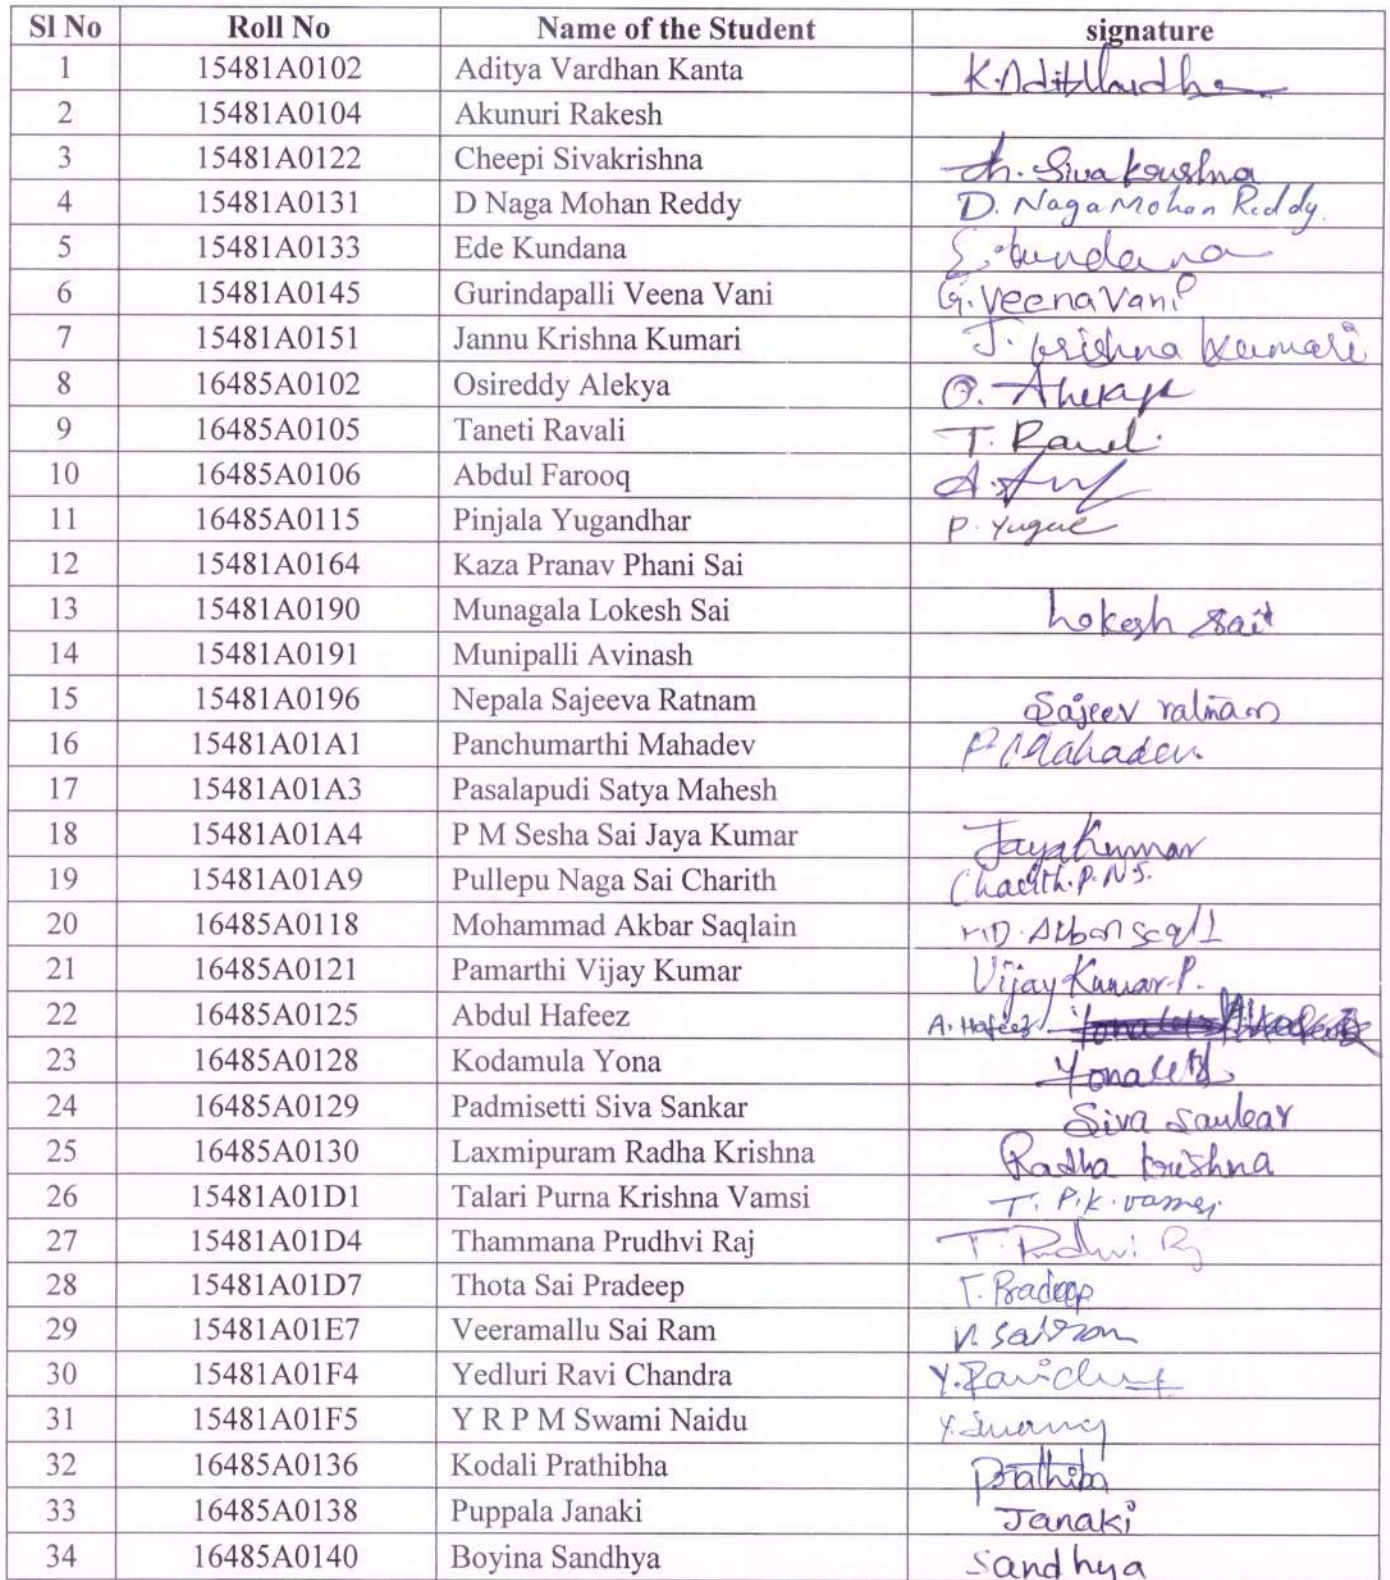 Sl No Roll No Name of the Student signature
1 15481A0102 Aditya Vardhan Kanta K.Adit
2 15481A0104 Akunuri Rakesh
3 15481A0122 Cheepi Sivakrishna ch. Siva krushna
4 15481A0131 D Naga Mohan Reddy D. Naga Mohan Reddy.
5 15481A0133 Ede Kundana E. kundana
6 15481A0145 Gurindapalli Veena Vani G. Veena Vani
7 15481A0151 Jannu Krishna Kumari J. krishna kumari
8 16485A0102 Osireddy Alekya O.
9 16485A0105 Taneti Ravali T. Raval.
10 16485A0106 Abdul Farooq A.
11 16485A0115 Pinjala Yugandhar P.
12 15481A0164 Kaza Pranav Phani Sai
13 15481A0190 Munagala Lokesh Sai Lokesh sai
14 15481A0191 Munipalli Avinash
15 15481A0196 Nepala Sajeeva Ratnam Sajeev ratnam
16 15481A01A1 Panchumarthi Mahadev P. Mahadev.
17 15481A01A3 Pasalapudi Satya Mahesh
18 15481A01A4 P M Sesha Sai Jaya Kumar JayaKumar
19 15481A01A9 Pullepu Naga Sai Charith Charith. P. N S.
20 16485A0118 Mohammad Akbar Saqlain MD. Akbar
21 16485A0121 Pamarthi Vijay Kumar Vijay Kumar. P.
22 16485A0125 Abdul Hafeez A. Hafeez
23 16485A0128 Kodamula Yona Yona
24 16485A0129 Padmisetti Siva Sankar Siva sankar
25 16485A0130 Laxmipuram Radha Krishna Radha krishna
26 15481A01D1 Talari Purna Krishna Vamsi T. P. K. vamsi
27 15481A01D4 Thammana Prudhvi Raj T. Prudhvi Raj
28 15481A01D7 Thota Sai Pradeep T. Pradeep
29 15481A01E7 Veeramallu Sai Ram V. Sairam
30 15481A01F4 Yedluri Ravi Chandra Y.
31 15481A01F5 Y R P M Swami Naidu Y. Swamy
32 16485A0136 Kodali Prathibha Prathiba
33 16485A0138 Puppala Janaki Janaki
34 16485A0140 Boyina Sandhya Sandhya